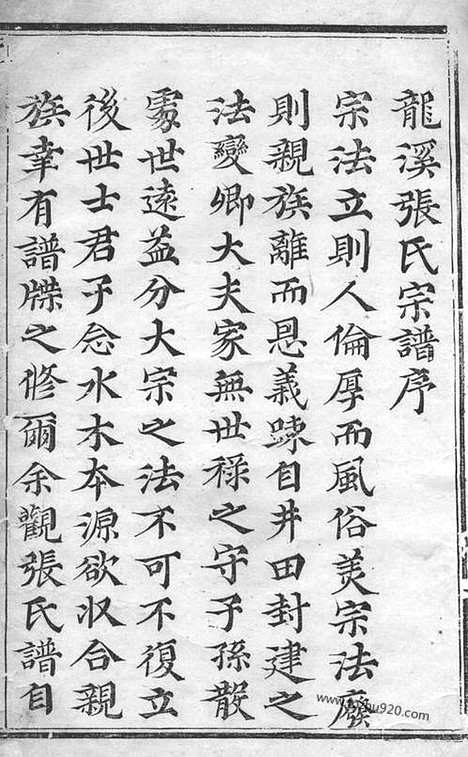 龍溪張氏宗譜序
宗法立則人倫厚而風俗美宗法廢
則親族離而恩義踈自井田封建之
法變卿大夫家無世祿之守子孫散
處世遠益分大宗之法不可不復立
後世士君子念水木本源欲収合親
族幸有譜牒之修爾余觀張氏譜自